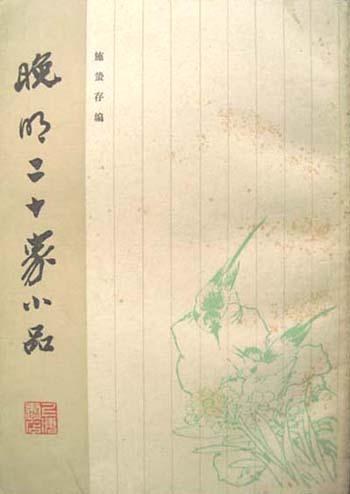 晚明二十家小品
施蛰存编